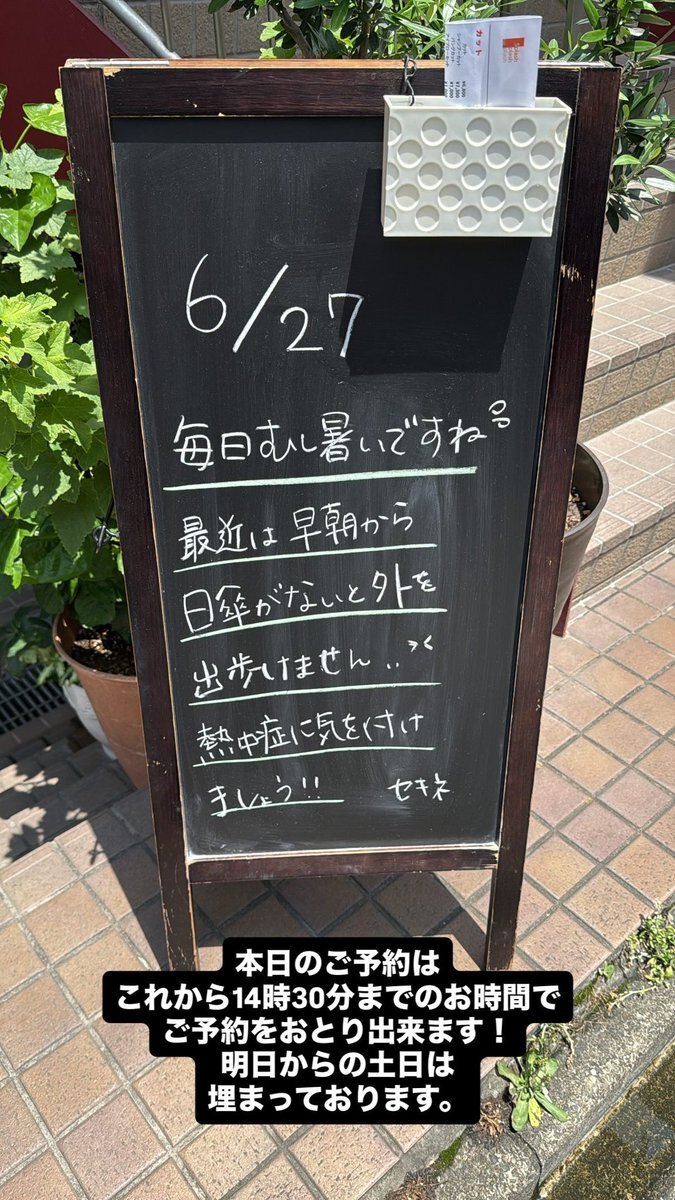 カット
6/27
毎日むし暑いですね
最近は早朝から
日傘がないと外を
出歩けません..
熱中症に気を付け
ましょう!!
セキネ
本日のご予約は
これから14時30分までのお時間で
ご予約をおとり出来ます！
明日からの土日は
埋まっております。